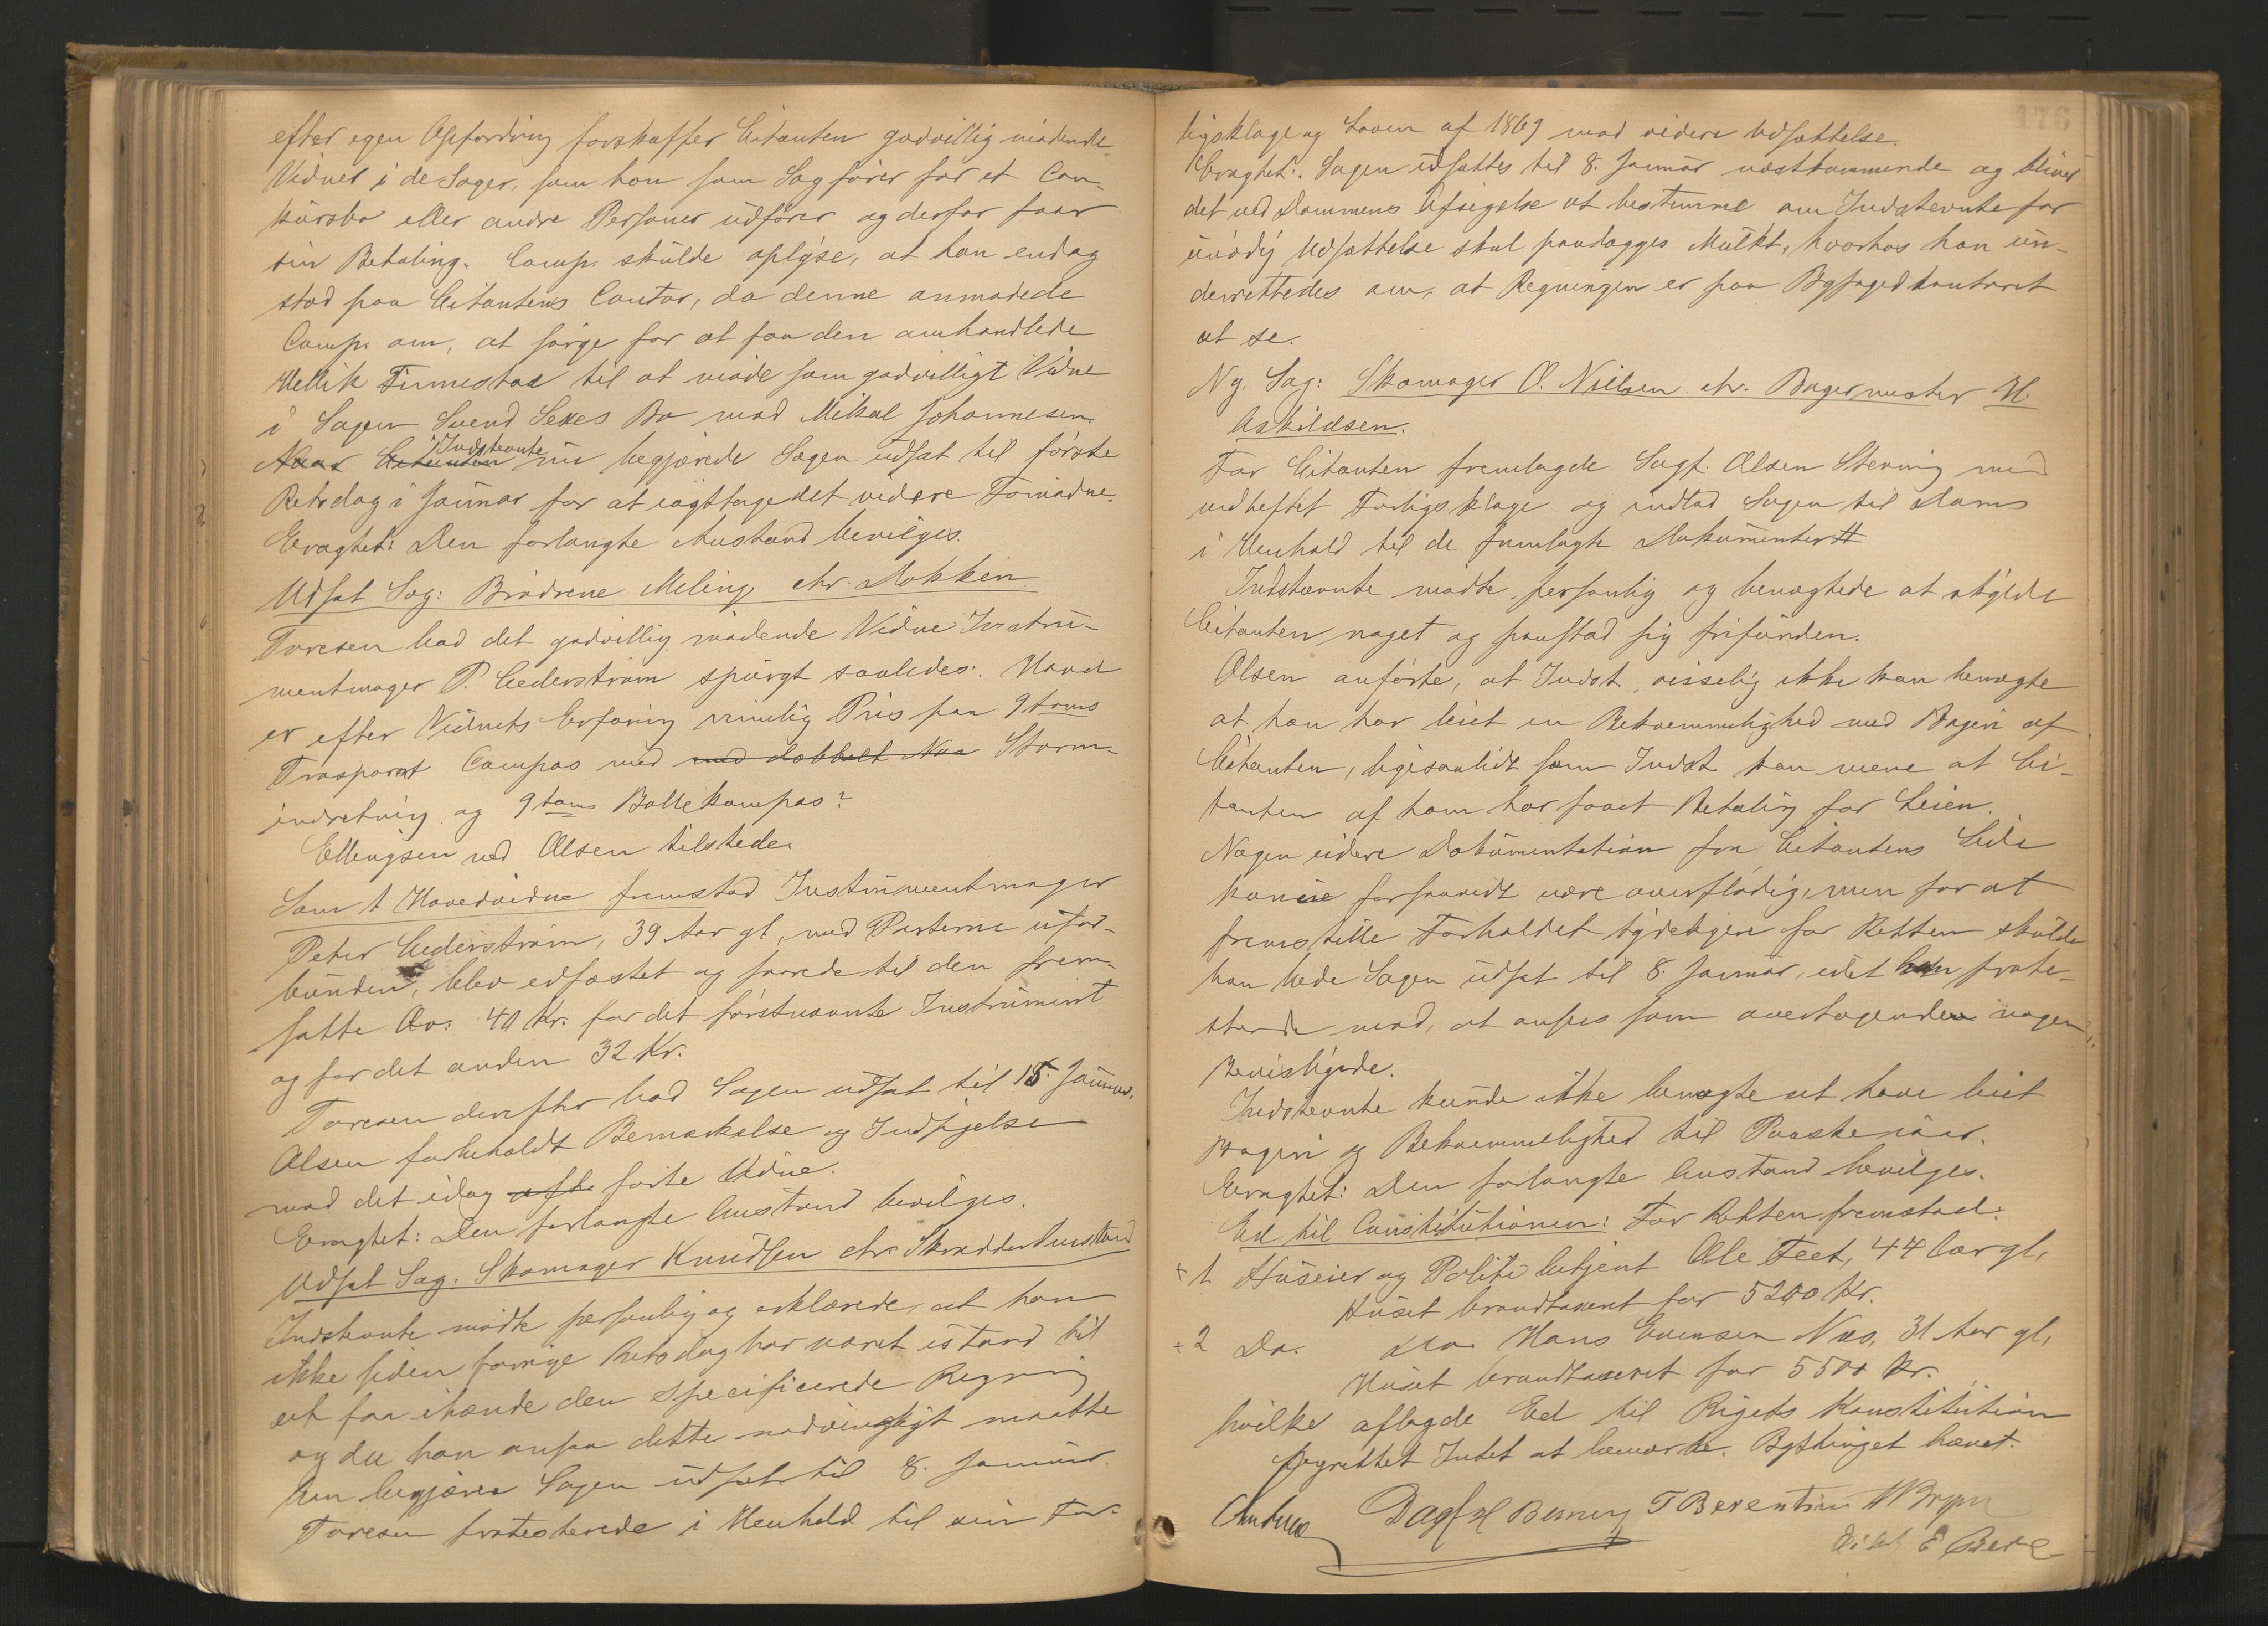 efter egen Opfordring forskaffer Citanten godvillig mødende
Vidner i de Sager, som han som Sagfører for et Con-
kursbo eller andre Personer udfører og derfor faar
sin Betaling. Comp. skulde oplyse, at han endog
stod paa Citantens Contor, da denne anmodede
Comp. om, at sørge for at faa den omhandlede
Mellik Finnestad til at møde som godvilligt Vidne
i Sagen Svend Sexes Bo mod Mikal Johannesen.
Indstevnte
nu begjærede Sagen udsat til første
Retsdag i Januar for at iagttage det videre Fornødne.
Eragtet: Den forlangte Anstand bevilges.
Udsat Sag: Brødrene Meling ctr. Dokken.
Toresen bad det godvillig mødende Vidne Instru-
mentmager P. Cederstrøm spurgt saaledes: Hvad
er efter Vidnets Erfaring rimelig Pris paa 9 toms
Trasporat Compas med med dobbelt Storm-
indretning og 9 toms Bollekompas?
Ellingsen ved Olsen tilstede.
Som 1 Hovedvidne fremstod Instrumentmager
Peter Cederstrøm, 39 Aar gl., med Parterne ufor-
bunden, blev edfæstet og svarede til den frem-
satte Qv: 40 Kr. for det førstnævnte Instrument
og for det anden 32 Kr.
Toresen derefter bad Sagen udsat til 15. Januar.
Olsen forbeholdt Bemærkelse og Indsigelse
mod det idag afhø førte Vidne.
Eragtet: Den forlangte Anstand bevilges.
Udsat Sag. Skomager Knudsen ctr. Skrædder
Indstevnte mødte personlig og erklærede, at han
ikke siden forrige Retsdag har været istand til
at faa ihænde den specificerede Regning
og da han ansaa dette nødvendigt maatte
han begjære Sagen udsat til 8. Januar.
Toresen protesterede i Henhold til sin For-
176
ligsklage og Loven af 1869 mod videre Udsættelse.
Eragtet: Sagen udsættes til 8. Januar næstkommende og bliver
det ved Dommens Afsigelse at bestemme om Indstevnte for
unødig Udsættelse skal paalægges Mulkt, hvorhos han un-
derrettedes om, at Regningen er paa Byfogedkontoret
at se.
Ny Sag: Skomager O. Nielsen ctr. Bagermester H.
Askildsen.
For Citanten fremlagde Sagf. Olsen Stevning med
vedheftet Forligsklage og indlod Sagen til Doms
i Henhold til de fremlagte Dokumenter
Indstævnte mødte personlig og benægtede at skylde
Citanten noget og paastod sig frifunden.
Olsen anførte, at Indst. visselig ikke kan benægte
at han har leiet en Bekvemmelighed med Bageri af
Citanten, ligesaalidt som Indst. kan mene at Ci-
tanten af ham har faaet Betaling for Leien.
Nogen videre Dokumentation fra Citantens Side
kunne forsaavidt være overflødig, men for at
fremstille Forholdet tydeligere for Retten skulde
han bede Sagen udsat til 8. Januar, idet han prote-
sterede mod, at ansees som overtagende nogen
Bevisbyrde.
Indstevnte kunde ikke benægte at have leiet
Bageri og Bekvemmelighed til Paaske iaar.
Eragtet: Den forlangte Anstand bevilges.
Ed til Constitutionen: For Retten fremstod:
+ 1 Huseier og Politibetjent Ole Feet, 44 Aar gl,
Huset brandtaxeret for 5200 Kr.
+ 2 Do. Do. Hans Evensen Næs, 31 Aar gl,
Huset brandtaxeret for 5500 Kr.
hvilke aflagde Ed til Rigets Konstitution
Pasrettet Intet at bemærke. Bythinget hævet.
T Berentsen
E Berg